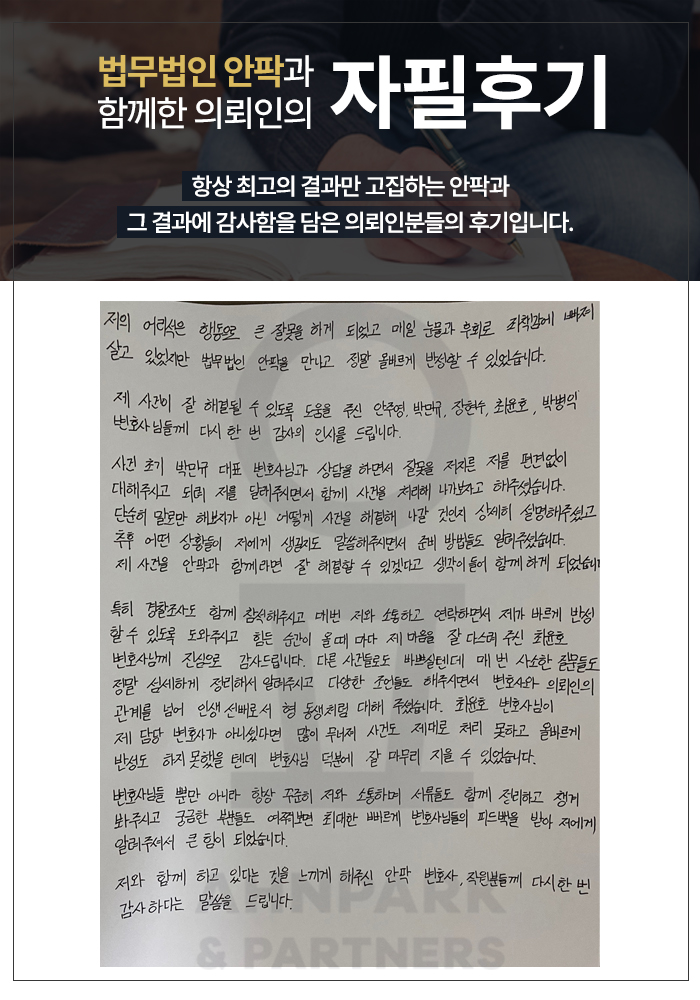 법무법인 안팍과
함께한 의뢰인의
자필후기
항상 최고의 결과만 고집하는 안팍과
그 결과에 감사함을 담은 의뢰인분들의 후기입니다.
저의 어리석은 행동으로 큰 잘못을 하게 되었고 매일 눈물과 후회로 자책감에 빠져
살고 있었지만 법무법인 안팍을 만나고 정말 올바르게 반성할 수 있었습니다.
제 사건이 잘 해결될 수 있도록 도움을 주신 안주영, 박민규, 장현수, 최윤호, 박병익
변호사님들께 다시 한 번 감사의 인사를 드립니다.
사건 초기 박민규 대표 변호사님과 상담을 하면서 잘못을 저지른 저를 편견없이
대해주시고 되려 저를 달래주시면서 함께 사건을 처리해 나가보자고 해주셨습니다.
단순히 말로만 해보자가 아닌 어떻게 사건을 해결해 나갈 것인지 상세히 설명해주셨고
추후 어떤 상황들이 저에게 생길지도 말씀해주시면서 준비 방법들도 알려주셨습니다.
제 사건을 안팍과 함께라면 잘 해결할 수 있겠다고 생각이 들어 함께 하게 되었습니
특히 경찰조사도 함께 참석해주시고 매번 저와 소통하고 연락하면서 제가 바르게 반성
할 수 있도록 도와주시고 힘든 순간이 올 때 마다 제 마음을 잘 다스려 주신 최윤호
변호사님께 진심으로 감사드립니다. 다른 사건들로도 바쁘실텐데 매 번 사소한 질문들도
정말 섬세하게 정리해서 알려주시고 다양한 조언들도 해주시면서 변호사와 의뢰인의
관계를 넘어 인생 선배로서 형 동생처럼 대해 주셨습니다. 최윤호 변호사님이
제 담당 변호사가 아니셨다면 많이 무너져 사건도 제대로 처리 못하고 올바르게
반성도 하지 못했을 텐데 변호사님 덕분에 잘 마무리 지을 수 있었습니다.
변호사님들 뿐만 아니라 항상 꾸준히 저와 소통하며 서류들도 함께 정리하고 챙겨
봐주시고 궁금한 부분들도 여쭤보면 최대한 빠르게 변호사님들의 피드백을 받아 저에게
알려주셔서 큰 힘이 되었습니다.
저와 함께 하고 있다는 것을 느끼게 해주신 안팍 변호사, 직원분들께 다시 한 번
감사하다는 말씀을 드립니다.
AHNPARK
& PARTNERS